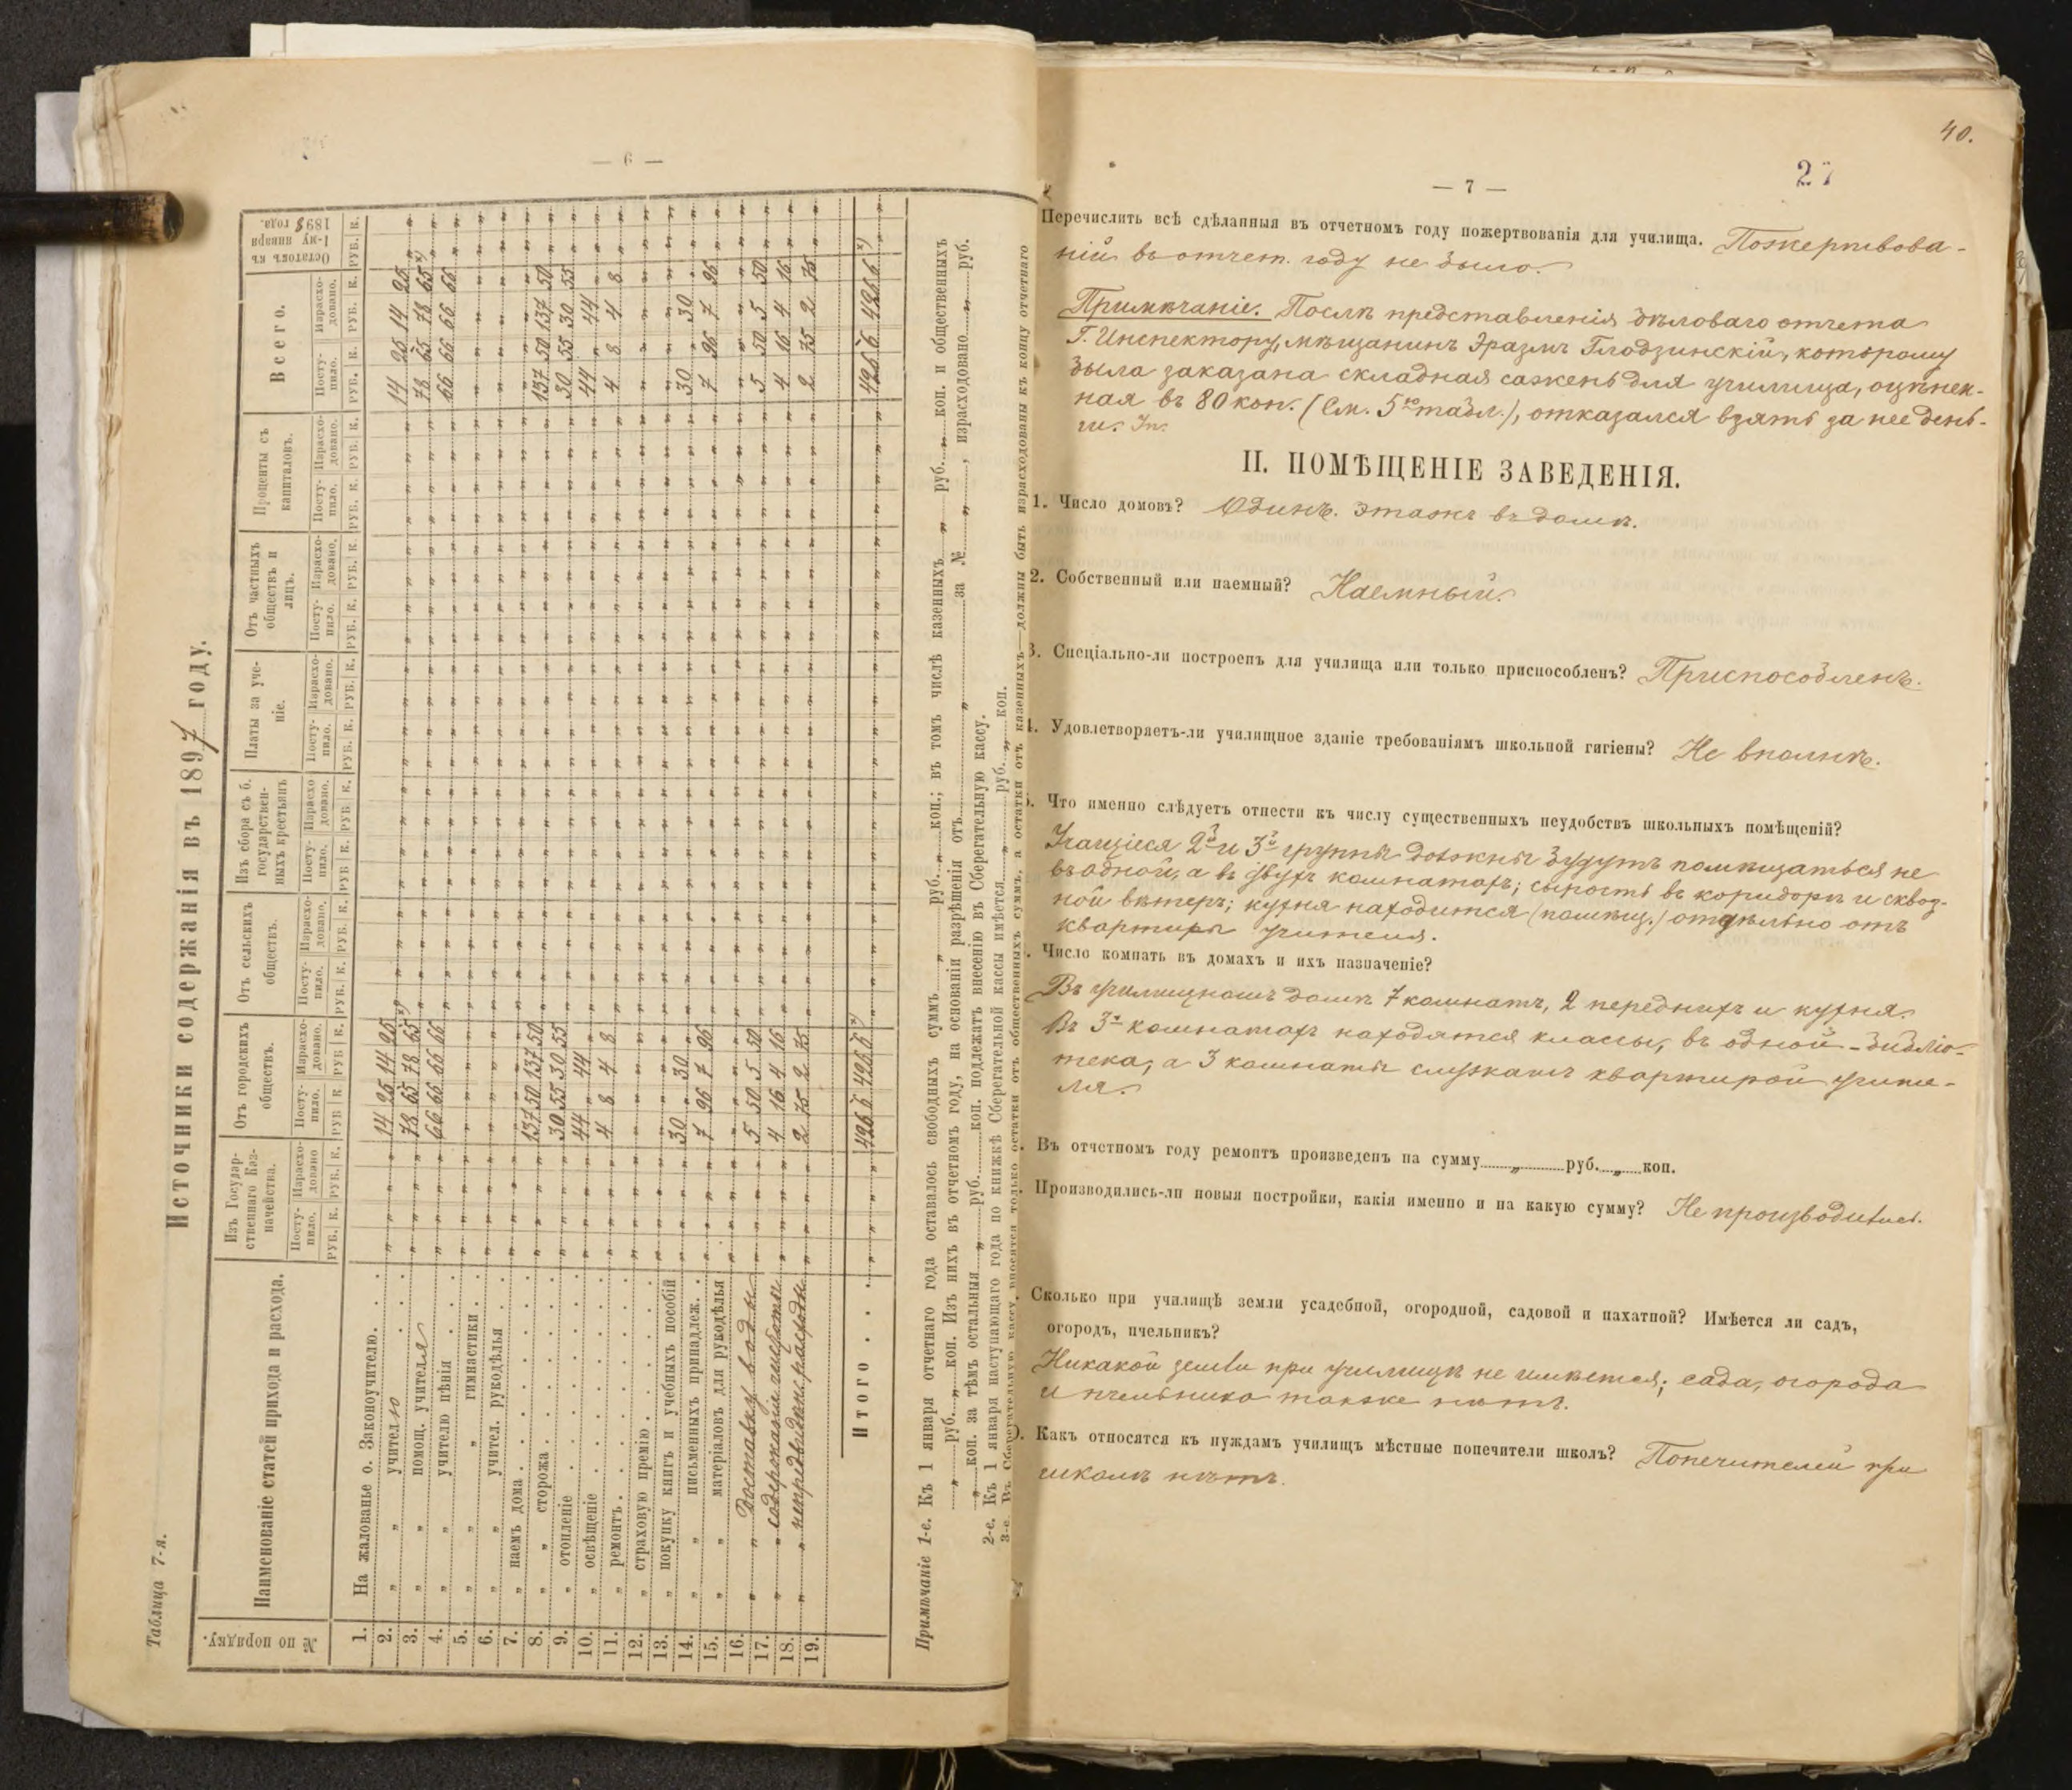 — 6 —
Таблица 7-я.
Источники содержанія въ 1897 году.
№ по порядку.
Наименованіе статей прихода и расхода.
Изъ Государственнаго Казначейства.
Отъ городскихъ обществъ.
Отъ сельскихъ обществъ.
Изъ сбора съ б. государственныхъ крестьянъ
Платы за ученіе.
Отъ частныхъ обществъ и лицъ.
Проценты съ капиталовъ.
Всего.
Остатокъ къ 1-му января 1898 года.
Поступило. Израсходовано.
РУБ. К.
1. На жалованье о. Законоучителю. 14 25 14 25 14 25 14 25
2. „ „ учителю 78 65 78 65 х) 78 65 78 65 х)
3. „ „ помощ. учителя 66 66 66 66 66 66 66 66
4. „ „ учителю пѣнія
5. „ „ гимнастики
6. „ „ учител. рукодѣлья
7. „ наемъ дома 137 50 137 50 137 50 137 50
8. „ „ сторожа 30 55 30 55 30 55 30 55
9. „ отопленіе 44 „ 44 „ 44 „ 44 „
10. „ освѣщеніе 4 8 4 8 4 8 4 8
11. „ ремонтъ
12. „ страховую премію
13. „ покупку книгъ и учебныхъ пособій 30 „ 30 „ 30 „ 30 „
14. „ „ письменныхъ принадлеж. 7 96 7 96 7 96 7 96
15. „ „ матеріаловъ для рукодѣлья
16. „ доставку воды 5 50 5 50 5 50 5 50
17. „ содержаніе 4 16 4 16 4 16 4 16
18. „ непредвидѣн. расходы 2 75 2 75 2 75 2 75
19.
Итого 426 6 426 6 х) 426 6 426 6 х)
Примѣчаніе 1-е. Къ 1 января отчетнаго года оставалось свободныхъ суммъ „ руб. „ коп.; въ томъ числѣ казенныхъ „ руб. „ коп. и общественныхъ
„ руб. „ коп. Изъ нихъ въ отчетномъ году, на основаніи разрѣшенія отъ „ за № „, израсходовано „ руб.
„ коп. за тѣмъ остальныя „ руб. коп. подлежатъ внесенію въ Сберегательную кассу.
2-е. Къ 1 января наступающаго года по книжкѣ Сберегательной кассы имѣется „ руб. „ коп.
3-е. Въ Сберегательную кассу вносятся только остатки отъ общественныхъ суммъ, а остатки отъ казенныхъ—должны быть израсходованы къ концу отчетнаго
40.
27
— 7 —
Перечислить всѣ сдѣланныя въ отчетномъ году пожертвованія для училища. Пожертвова-
ній въ отчет. году не было.
Примѣчаніе. Послѣ представленія дѣловаго отчета
Г. Инспектору, мѣщанинъ Эразмъ Глодзинскій, которому
была заказана складная сажень для училища, оцѣнен-
ная въ 80 коп. (См. 5ю табл.), отказался взять за нее день-
ги.
II. ПОМѢЩЕНІЕ ЗАВЕДЕНІЯ.
1. Число домовъ? Одинъ. этажъ въ домѣ.
2. Собственный или наемный? Наемный.
3. Спеціально-ли построенъ для училища или только приспособленъ? Приспособленъ.
4. Удовлетворяетъ-ли училищное зданіе требованіямъ школьной гигіены? Не вполнѣ.
5. Что именно слѣдуетъ отнести къ числу существенныхъ неудобствъ школьныхъ помѣщеній?
Учащіеся 2й и 3й группы должны будутъ помѣщаться не
въ одной, а въ двухъ комнатахъ; сырость въ коридорѣ и сквоз-
ной вѣтеръ; кухня находится (помѣщ.) отдѣльно отъ
квартиры учителя.
Число комнатъ въ домахъ и ихъ назначеніе?
Въ училищномъ домѣ 7 комнатъ, 2 переднихъ и кухня.
Въ 3х комнатахъ находятся классы, въ одной - библіо-
тека, а 3 комнаты служатъ квартирой учите-
ля.
Въ отчетномъ году ремонтъ произведенъ на сумму „ руб. „ коп.
Производились-ли новыя постройки, какія именно и на какую сумму? Не производились.
Сколько при училищѣ земли усадебной, огородной, садовой и пахатной? Имѣется ли садъ,
огородъ, пчельникъ?
Никакой земли при училищѣ не имѣется; сада, огорода
и пчельника также нѣтъ.
Какъ относятся къ нуждамъ училищъ мѣстные попечители школъ? Попечителей при
школѣ нѣтъ.